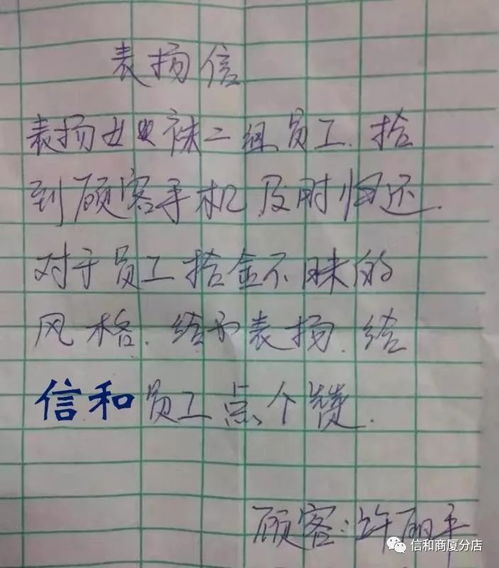 表扬信
表扬业袜二组员工.拾
到顾客手机及时归还.
对于员工拾金不昧的
风格.给予表扬.给
信和员工点个赞.
顾客:许丽平
信和商厦分店